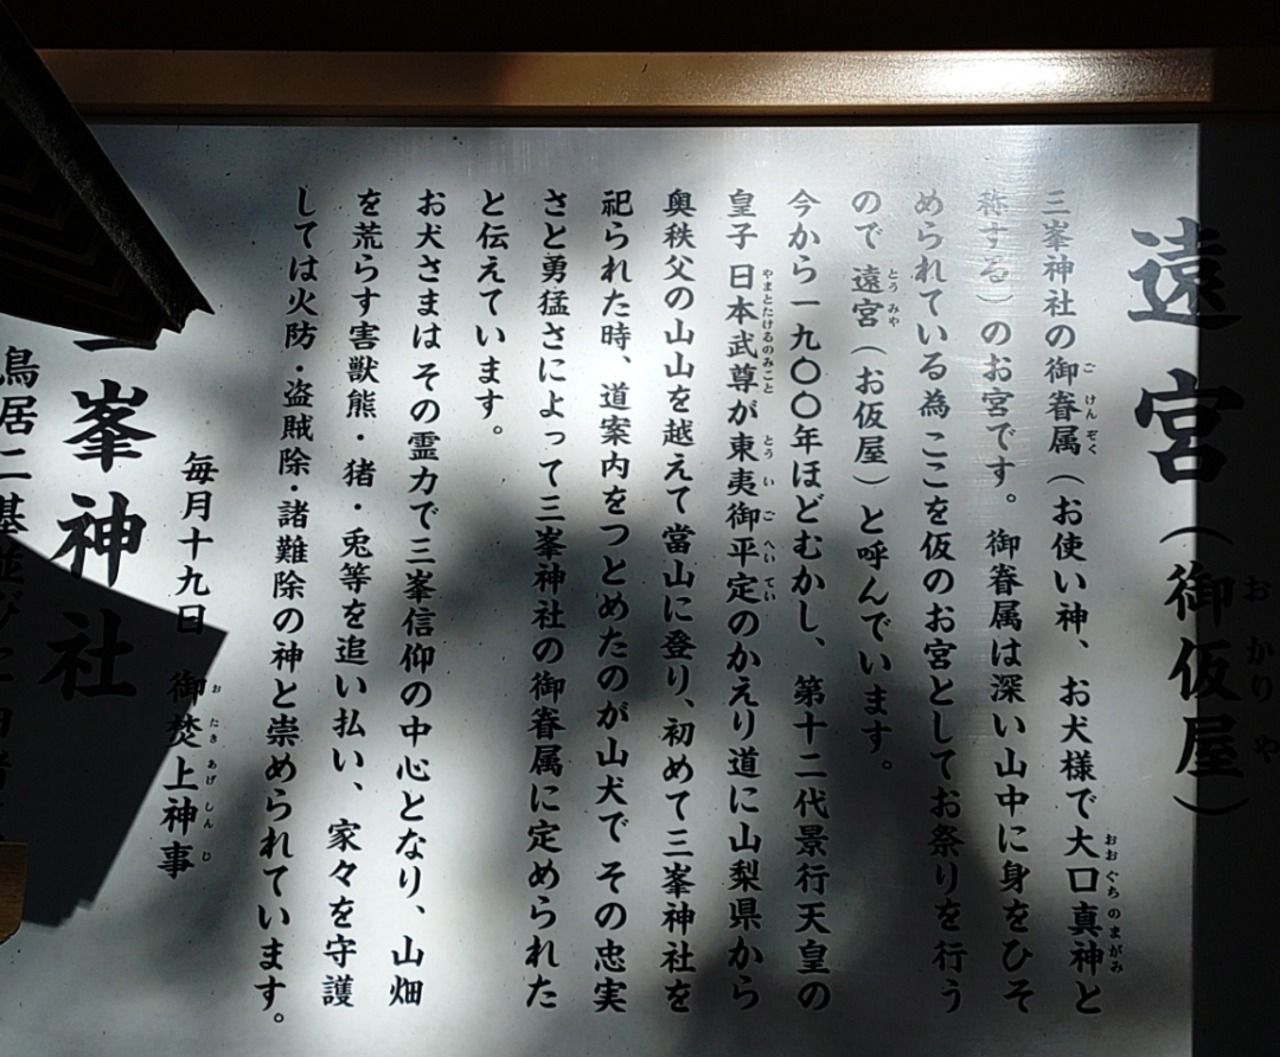 遠宮（御仮屋）
おかりや
三峯神社の御眷属（お使い神、お犬様で大口真神と
ごけんぞく
おおぐちのまがみ
称する）のお宮です。御眷属は深い山中に身をひそ
められている為ここを仮のお宮としてお祭りを行う
ので遠宮（お仮屋）と呼んでいます。
とうみや
今から一九〇〇年ほどむかし、第十二代景行天皇の
皇子日本武尊が東夷御平定のかえり道に山梨県から
やまとたけるのみこと
とういごへいてい
奥秩父の山山を越えて當山に登り、初めて三峯神社を
祀られた時、道案内をつとめたのが山犬でその忠実
さと勇猛さによって三峯神社の御眷属に定められた
と伝えています。
お犬さまはその霊力で三峯信仰の中心となり、山畑
を荒らす害獣熊・猪・兎等を追い払い、家々を守護
しては火防・盗賊除・諸難除の神と崇められています。
毎月十九日　御焚上神事
おたきあげしんじ
峯神社
鳥居二基並びに